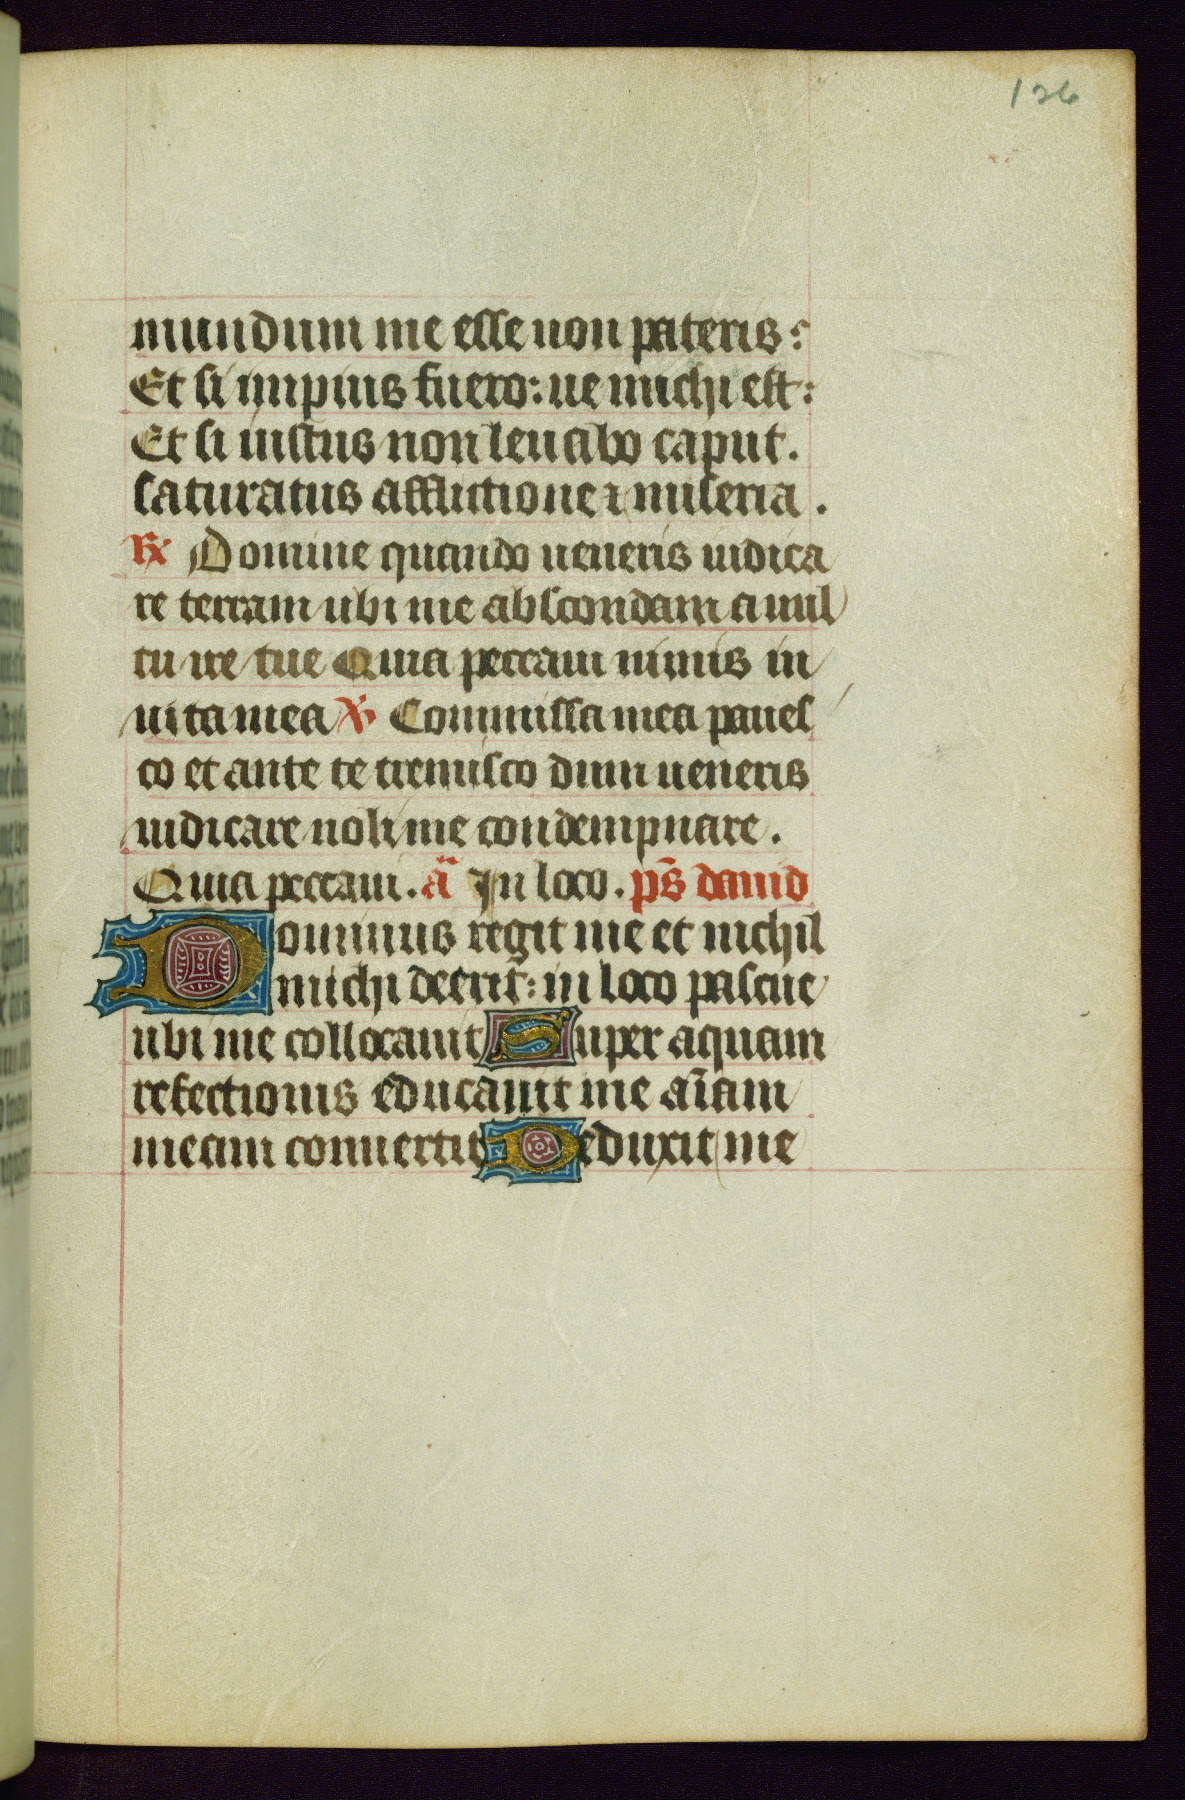 126
mundum me esse non pateris:
Et si impius fuero: ue michi est:
Et si iustus non leuabo caput.
saturatus afflictione ⁊ miseria.
℟ Domine quando ueneris iudica
re terram ubi me abscondam a uul
tu ire tue Quia peccaui nimis in
uita mea ℣ Commissa mea paues
co et ante te tremisco dum ueneris
iudicare noli me condempnare.
Quia peccaui. a᷃ In loco. ps̄ dauid
Dominus regit me et nichil
michi deerit: in loco pascue
ubi me collocauit Super aquam
refectionis educauit me aīam
meam conuertit Deduxit me